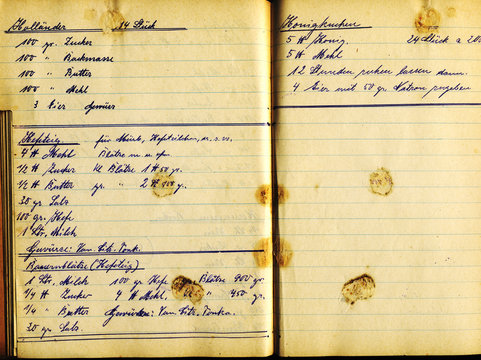 Holländer 24 Stück
100 gr. Zucker
100 " Backmasse
100 " Butter
100 " Mehl
3 Eier Gewürz
Hefeteig für
4 ℔ Mehl
1/2 ℔ Zucker kl Blätze 1 ℔ 50 gr.
1/2 ℔ Butter gr. " 2 ℔
30 gr. Salz
100 gr. Hefe
1 Ltr. Milch
Gewürze: Van. Zit. Tonka
Bauernblätze (Hefeteig)
1 Ltr. Milch 100 gr Hefe Blätze 900 gr.
3/4 ℔ Zucker 4 ℔ Mehl, " 450 gr.
3/4 " Butter Gewürze: Van. Zit. Tonka.
30 gr. Salz
Honigkuchen
5 ℔ Honig. 24 Stück a
5 ℔ Mehl
12 Stunden ruhen lassen dann
4 Eier mit 50 gr. Natron zugeben